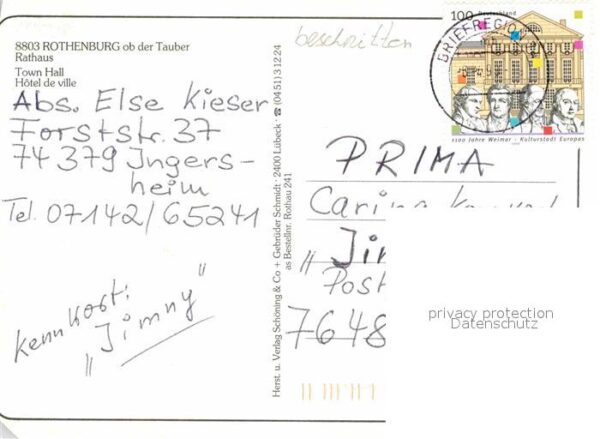 8803 ROTHENBURG ob der Tauber
Rathaus
Town Hall
Hôtel de ville
Abs. Else Kieser
Forststr. 37
74379 Ingers-
heim
Tel. 07142/65241
Kennkost:
"Jimny"
Herst. u. Verlag Schöning & Co + Gebrüder Schmidt · 2400 Lübeck · ☎ (0451) 31224
as Bestellnr. Rothau 241
beschnitten
100 Deutschland
BRIEFREGION
1100 Jahre Weimar - Kulturstadt Europas
PRIMA
Carina
"Jim
Post
7648
privacy protection
Datenschutz